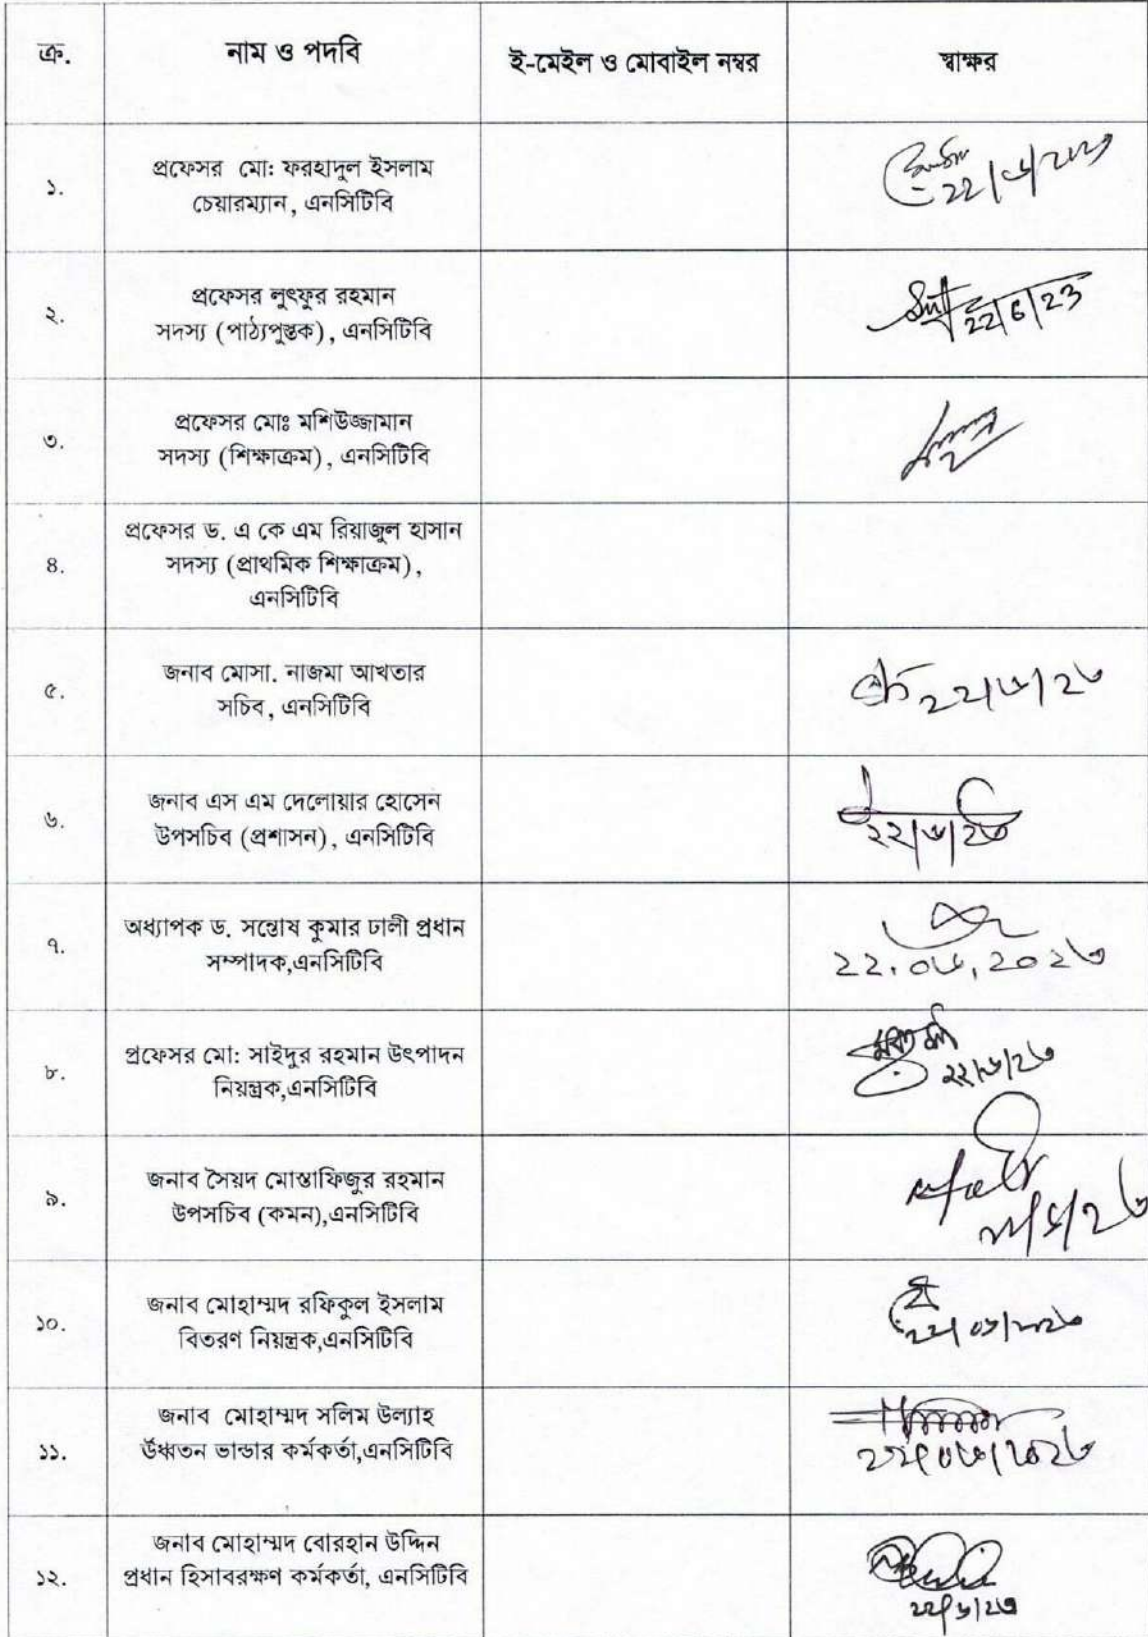 ক্র.
নাম ও পদবি
ই-মেইল ও মোবাইল নম্বর
স্বাক্ষর
১.
প্রফেসর মো: ফরহাদুল ইসলাম
চেয়ারম্যান, এনসিটিবি
২২/৬/২০২৩
২.
প্রফেসর লুৎফুর রহমান
সদস্য (পাঠ্যপুস্তক), এনসিটিবি
22/6/23
৩.
প্রফেসর মোঃ মশিউজ্জামান
সদস্য (শিক্ষাক্রম), এনসিটিবি
৪.
প্রফেসর ড. এ কে এম রিয়াজুল হাসান
সদস্য (প্রাথমিক শিক্ষাক্রম),
এনসিটিবি
৫.
জনাব মোসা. নাজমা আখতার
সচিব, এনসিটিবি
২২/৬/২৩
৬.
জনাব এস এম দেলোয়ার হোসেন
উপসচিব (প্রশাসন), এনসিটিবি
২২/৬/২৩
৭.
অধ্যাপক ড. সন্তোষ কুমার ঢালী প্রধান
সম্পাদক,এনসিটিবি
২২.০৬.২০২৩
৮.
প্রফেসর মো: সাইদুর রহমান উৎপাদন
নিয়ন্ত্রক,এনসিটিবি
২২/৬/২৩
৯.
জনাব সৈয়দ মোস্তাফিজুর রহমান
উপসচিব (কমন),এনসিটিবি
২২/৬/২৩
১০.
জনাব মোহাম্মদ রফিকুল ইসলাম
বিতরণ নিয়ন্ত্রক,এনসিটিবি
২২/০৬/২০২৩
১১.
জনাব মোহাম্মদ সলিম উল্যাহ
উর্ধ্বতন ভান্ডার কর্মকর্তা,এনসিটিবি
২২/০৬/২০২৩
১২.
জনাব মোহাম্মদ বোরহান উদ্দিন
প্রধান হিসাবরক্ষণ কর্মকর্তা, এনসিটিবি
২২/৬/২৩